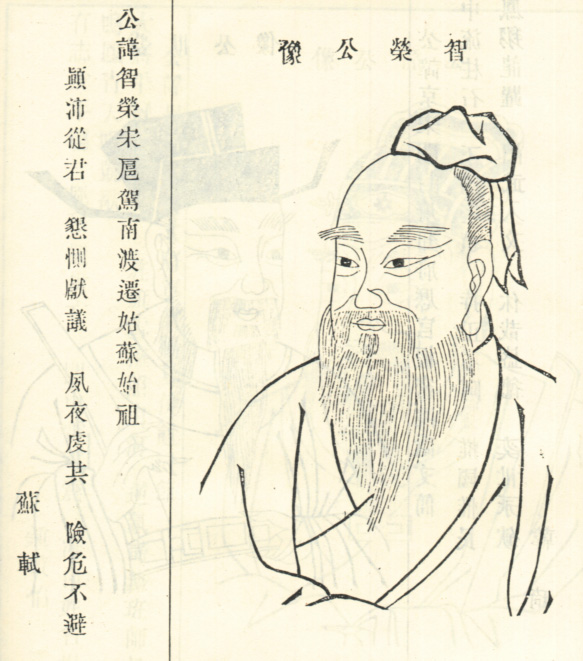 智榮公像
公諱智榮宋扈駕南渡遷姑蘇始祖
顚沛從君 懇惻獻議 夙夜虔共 險危不避
蘇軾